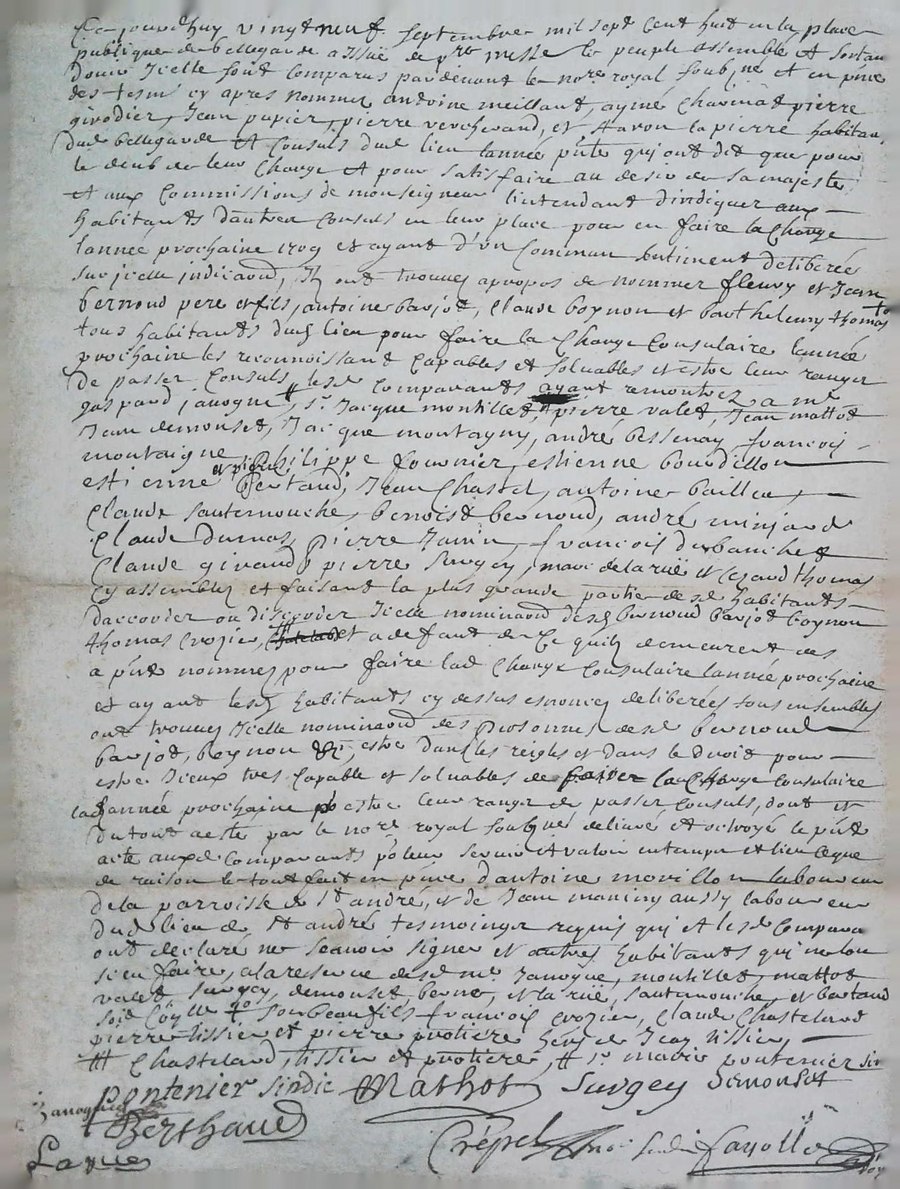 Ce jourdhuy vingt neuf septembre mil sept cent huit en la place
publique de bellegarde a issüe de messe le peuple assemble et sortan
douir Icelle sont comparus pardevant le nore royal soubzné et en pnce
des tesm cy apres nommez antoine meillant, aymé Charmat pierre
girodier, Jean papier, pierre verchevand, et Aaron lapierre habitan
dud bellegarde et Consuls dud lieu lannée pnte qui ont dit que pour
le deub de leur Charge et pour satisfaire au desir de sa majesté
et aux Commissions de monseigneur lintendant dindiquer aux
habitants dautres Consuls en leur place pour en faire la Charge
lannée prochaine 1709 et ayant d'un Commun sentiment deliberée
sur jcelle indicaond, Ils ont trouvez apropos de nommer fleury et Jean
bernoud pere et fils, antoine barjot, Claude boynon et barthelemy thomas
tous habitants dud lieu pour faire la Charge Consulaire lannée
prochaine les reconnoissant Capables et soluables et estre leur ranger
de passer Consuls lesd Comparants ayant remontrez a mr
gaspard janogne, sr Jacque montillet, pierre valet, Jean mattot
Jean demonset, Jacque montagny, andré bessenay, francois
montaigne, philippe fournier, estienne bourdillon
estienne et pierre bertaud, Jean Chastel, antoine bailleu,
Claude sautemouche, benoist bernoud, andré minjard
Claude dumas, pierre Jamin, francois dubanchet
Claude giraud, pierre surgey, marc delarüe et Cezard thomas
Cy assemblez et faisant la plus grande partie desd habitants
daccorder ou discorder Icelle nominaond desd bernoud barjot boynon
thomas Crozier, et a defaut de Ce quils demeurent des
a pnt nommez pour faire lad Charge Consulaire lannée prochaine
et ayant lesd habitants cy dessus enoncez deliberées tous ensembles
ont trouvez Icelle nominaond des personnes desd bernoud
barjod, boynon estre dans les reigles et dans le droit pour
estre Iceux tres Capable et soluables de passer la Charge Consulaire
lad année prochaine estre leur ranger de passer Consuls, dont et
du tout acte par le nore royal soubzné delivré et octroyé le pnt
acte auxd Comparants pr leur servir et valoir en temps et lieu Ce que
de raison le tout fait en pnce d'antoine morillon laboureur
de la parroisse de St andré, et de Jean maniny aussy laboureur
dud lieu de St andré tesmoinger requis qui et lesd Compara
ont declaré ne scavoir signer et autres habitants qui nelon
sceu faire, a la reserve desd mr Janogne, montillet, mattot
valet surgey, demonset, berne, et la rüe, sautemouche, et bertaud
francois Crozier, Claude Chasteland
pierre tissier et pierre protiere Jean tissier
Chasteland, tissier et protiere, sr marie pontenier sin
Pontenier sindic Mathot Surgey Demonset
Janogne
Berthaud
Crépel Fayolle
Larue